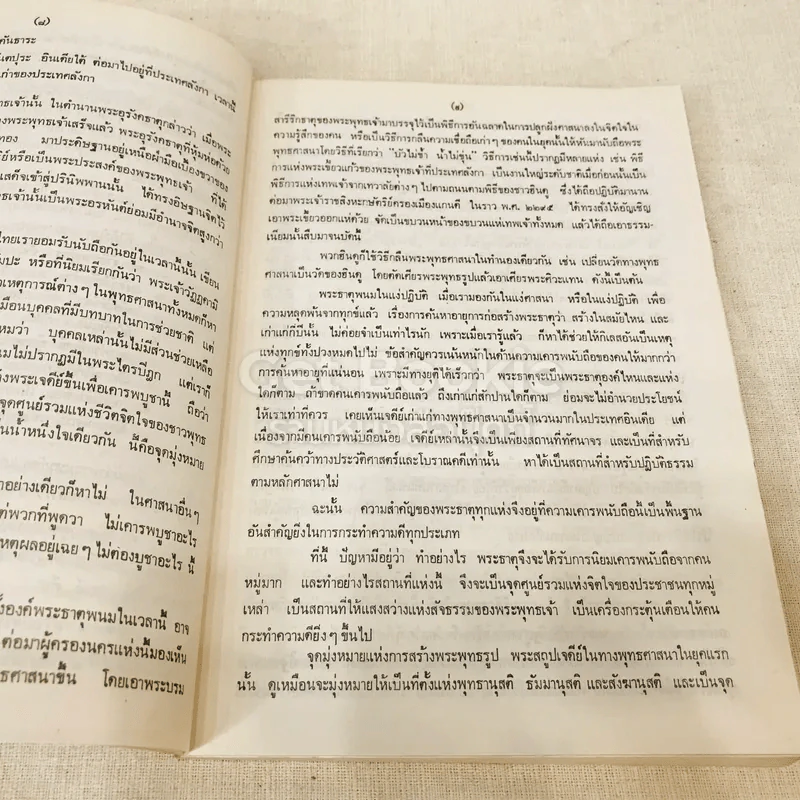 (๘)
คันธาระ
นัตปุระ อินเดียใต้ ต่อมาไปอยู่ที่ประเทศลังกา เวลานี้
เก่าของประเทศลังกา
ทธเจ้านั้น ในตำนานพระอุรังคธาตุกล่าวว่า เมื่อพระ
งพระพุทธเจ้าเสร็จแล้ว พระอุรังคธาตุที่หุ้มห่อด้วย
ทอง มาประดิษฐานอยู่เหนือฝ่ามือเบื้องขวาของ
ย์หรือเป็นพระประสงค์ของพระพุทธเจ้า ที่ได้
เสด็จเข้าสู่ปรินิพพานนั้น ได้ทรงอิษฐานจิตไว้
ทธเจ้านั้นเป็นพระอรหันต์ย่อมมีอำนาจจิตสูงกว่า
ไทยเรายอมรับนับถือกันอยู่ในเวลานี้นั้น เขียน
มปะ หรือที่นิยมเรียกกันว่า พระเจ้าวัฏฏคามิ
เหตุการณ์ต่างๆ ในพุทธศาสนาทั้งหมดก็หา
มือนบุคคลที่มีบทบาทในการช่วยชาติ แต่
หมว่า บุคคลเหล่านั้นไม่มีส่วนช่วยเหลือ
มไม่ปรากฏมีในพระไตรปิฎก แต่เราก็
งพระเจดีย์ขึ้นเพื่อเคารพบูชานี้ ถือว่า
จุดศูนย์รวมแห่งชีวิตจิตใจของชาวพุทธ
นน้ำหนึ่งใจเดียวกัน นี้คือจุดมุ่งหมาย
าอย่างเดียวก็หาไม่ ในศาสนาอื่นๆ
ต่พวกที่พูดว่า ไม่เคารพบูชาอะไร
หตุผลอยู่เฉยๆ ไม่ต้องบูชาอะไร นี้
งองค์พระธาตุพนมในเวลานี้ อาจ
ต่อมาผู้ครองนครแห่งนี้มองเห็น
ธศาสนาขึ้น โดยเอาพระบรม
(๙)
สารีริกธาตุของพระพุทธเจ้ามาบรรจุไว้เป็นพิธีการอันฉลาดในการปลูกฝังศาสนาลงในจิตใจใน
ความรู้สึกของคน หรือเป็นวิธีการกลืนความเชื่อถือเก่าๆ ของคนในยุคนั้นให้หันมานับถือพระ
พุทธศาสนาโดยวิธีที่เรียกว่า "บัวไม่ช้ำ น้ำไม่ขุ่น" วิธีการเช่นนี้ปรากฏมีหลายแห่ง เช่น พิธี
การแห่งพระเขี้ยวแก้วของพระพุทธเจ้าที่ประเทศลังกา เป็นงานใหญ่ระดับชาติเมื่อก่อนนั้นเป็น
พิธีการแห่เทพเจ้าจากเทวาลัยต่างๆ ไปตามถนนตามพิธีของชาวฮินดู ซึ่งได้ถือปฏิบัติมานาน
ต่อมาพระเจ้าราชสิงหะกษัตริย์ครองเมืองแกนดี ในราว พ.ศ. ๒๒๙๕ ได้ทรงสั่งให้อัญเชิญ
เอาพระเขี้ยวออกแห่ด้วย จัดเป็นขบวนหน้าของขบวนแห่เทพเจ้าทั้งหมด แล้วได้ถือเอาธรรม-
เนียมนั้นสืบมาจนบัดนี้
พวกฮินดูก็ใช้วิธีกลืนพระศาสนาในทำนองเดียวกัน เช่น เปลี่ยนวัดทางพุทธ
ศาสนาเป็นวัดของฮินดู โดยตัดเศียรพระพุทธรูปแล้วเอาเศียรพระศิวะแทน ดังนี้เป็นต้น
พระธาตุพนมในแง่ปฏิบัติ เมื่อเรามองกันในแง่ศาสนา หรือในแง่ปฏิบัติ เพื่อ
ความหลุดพ้นจากทุกข์แล้ว เรื่องการค้นหาอายุการก่อสร้างพระธาตุว่า สร้างในสมัยไหน และ
เก่าแก่กี่ปีนั้น ไม่ค่อยจำเป็นเท่าไรนัก เพราะเมื่อเรารู้แล้ว ก็หาได้ช่วยให้กิเลสอันเป็นเหตุ
แห่งทุกข์ทั้งปวงหมดไปไม่ ข้อสำคัญควรเน้นหนักในด้านความเคารพนับถือของคนให้มากกว่า
การค้นหาอายุที่แน่นอน เพราะมีทางยุติได้เร็วกว่า พระธาตุจะเป็นพระธาตุองค์ไหนและแห่ง
ใดก็ตาม ถ้าขาดคนเคารพนับถือแล้ว ถึงเก่าแก่สักปานใดก็ตาม ย่อมจะไม่อำนวยประโยชน์
ให้เราเท่าที่ควร เคยเห็นเจดีย์เก่าแก่ทางศาสนาเป็นจำนวนมากในประเทศอินเดีย แต่
เนื่องจากมีคนเคารพนับถือน้อย เจดีย์เหล่านั้นจึงเป็นเพียงสถานที่ทัศนาจร และเป็นที่สำหรับ
ศึกษาค้นคว้าทางประวัติศาสตร์และโบราณคดีเท่านั้น หาได้เป็นสถานที่สำหรับปฏิบัติธรรม
ตามหลักศาสนาไม่
ฉะนั้น ความสำคัญของพระธาตุทุกแห่งจึงอยู่ที่ความเคารพนับถือนี้เป็นพื้นฐาน
อันสำคัญยิ่งในการกระทำความดีทุกประเภท
ที่นี้ ปัญหามีอยู่ว่า ทำอย่างไร พระธาตุจึงจะได้รับการนิยมเคารพนับถือจากคน
หมู่มาก และทำอย่างไรสถานที่แห่งนี้ จึงจะเป็นจุดศูนย์รวมแห่งจิตใจของประชาชนทุกหมู่
เหล่า เป็นสถานที่ให้แสงสว่างแห่งสัจธรรมของพระพุทธเจ้า เป็นเครื่องกระตุ้นเตือนให้คน
กระทำความดียิ่งๆ ขึ้นไป
จุดมุ่งหมายแห่งการสร้างพระพุทธรูป พระสถูปเจดีย์ในทางพุทธศาสนาในยุคแรก
นั้น ดูเหมือนจะมุ่งหมายให้เป็นที่ตั้งแห่งพุทธานุสติ ธัมมานุสติ และสังฆานุสติ และเป็นจุด